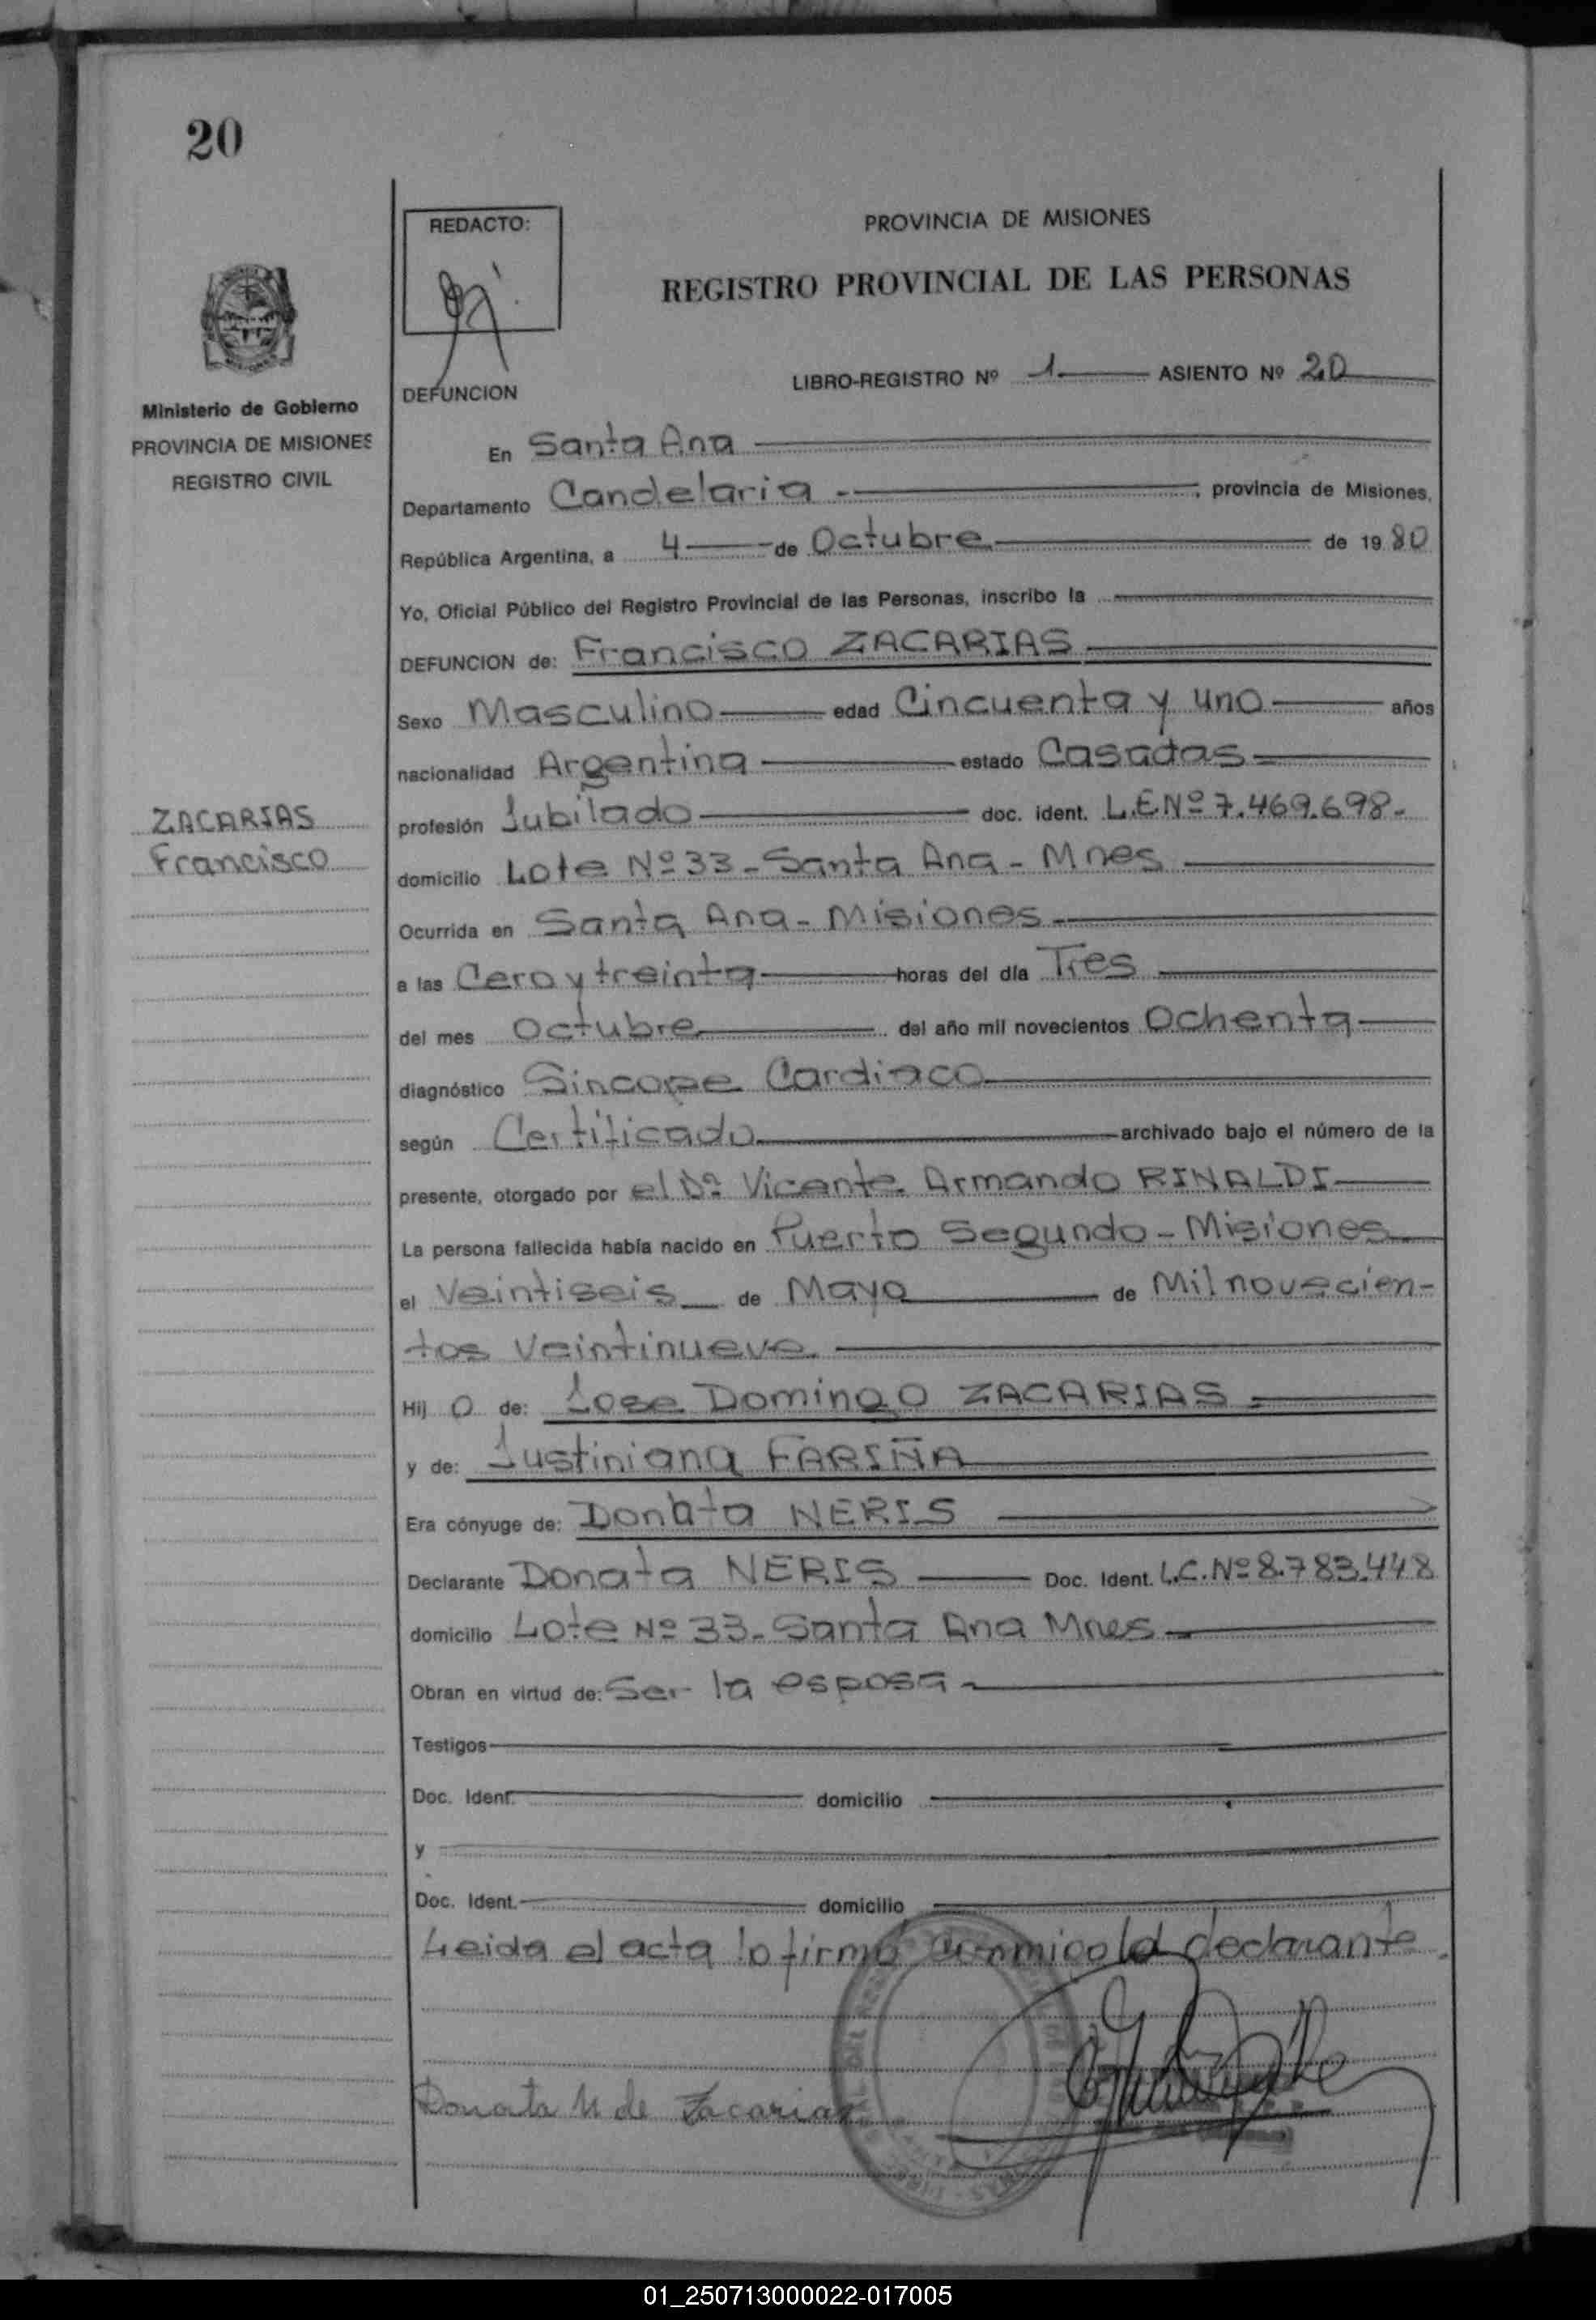 20
REDACTO:
PROVINCIA DE MISIONES
REGISTRO PROVINCIAL DE LAS PERSONAS
Ministerio de Gobierno
PROVINCIA DE MISIONES
REGISTRO CIVIL
DEFUNCION
LIBRO-REGISTRO Nº 1 ASIENTO Nº 20
En Santa Ana
Departamento Candelaria provincia de Misiones,
República Argentina, a 4 de Octubre de 1980
Yo, Oficial Público del Registro Provincial de las Personas, inscribo la
DEFUNCION de: Francisco ZACARIAS
Sexo Masculino edad Cincuenta y uno años
nacionalidad Argentina estado Casadas
ZACARIAS
Francisco
profesión Jubilado doc. ident. L.E.Nº 7.469.698.
domicilio Lote Nº 33 - Santa Ana - Mnes
Ocurrida en Santa Ana - Misiones
a las Cero y treinta horas del día Tres
del mes Octubre del año mil novecientos Ochenta
diagnóstico Sincope Cardiaco
según Certificado archivado bajo el número de la
presente, otorgado por el Dr. Vicente Armando RINALDI
La persona fallecida había nacido en Puerto Segundo - Misiones
el Veintiseis de Mayo de Mil novecien-
tos veintinueve
Hij o de: Jose Domingo ZACARIAS
y de: Justiniana FARIÑA
Era cónyuge de: Donata NERIS
Declarante Donata NERIS Doc. Ident. L.C.Nº 8.783.448
domicilio Lote Nº 33 - Santa Ana Mnes
Obran en virtud de: Ser la esposa
Testigos
Doc. Ident. domicilio
y
Doc. Ident. domicilio
Leida el acta lo firmó conmigo la declarante
Donata N de Zacarias
01_250713000022-017005